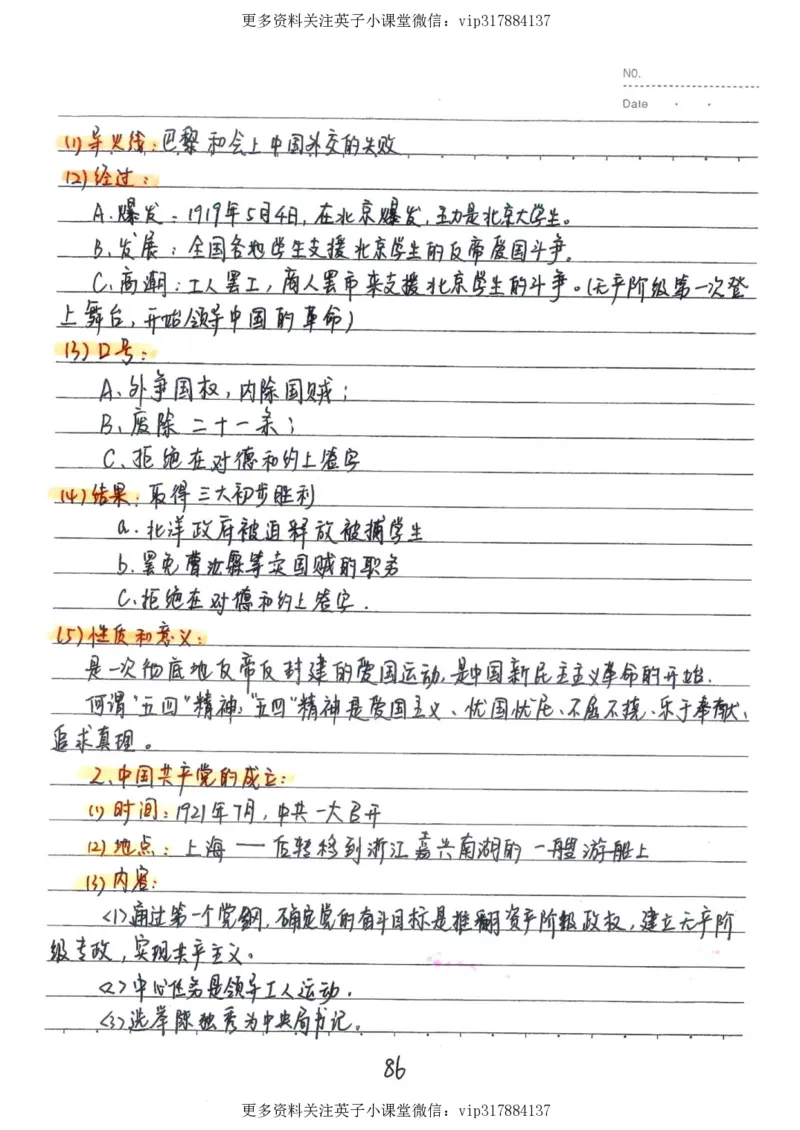 更多资料关注英子小课堂微信：vip317884137
NO.
Date
(1)导火线：巴黎和会上中国外交的失败
(2)经过：
A.爆发：1919年5月4日，在北京爆发，主力是北京大学生。
B.发展：全国各地学生支援北京学生的反帝爱国斗争。
C.高潮：工人罢工，商人罢市来支援北京学生的斗争。(无产阶级第一次登
上舞台，开始领导中国的革命)
(3)口号：
A、外争国权，内除国贼；
B、废除二十一条；
C、拒绝在对德和约上签字
(4)结果：取得三大初步胜利
a.北洋政府被迫释放被捕学生
b.罢免曹汝霖等卖国贼的职务
C.拒绝在对德和约上签字.
(5)性质和意义：
是一次彻底地反帝反封建的爱国运动，是中国新民主主义革命的开始.
何谓"五四"精神："五四"精神是爱国主义、忧国忧民、不屈不挠、乐于奉献、
追求真理。
2、中国共产党的成立：
(1)时间：1921年7月，中共一大召开
(2)地点：上海——后转移到浙江嘉兴南湖的一艘游船上
(3)内容：
<1>通过第一个党纲，确定党的奋斗目标是推翻资产阶级政权，建立无产阶
级专政，实现共产主义。
<2>中心任务是领导工人运动.
<3>选举陈独秀为中央局书记。
86
更多资料关注英子小课堂微信：vip317884137